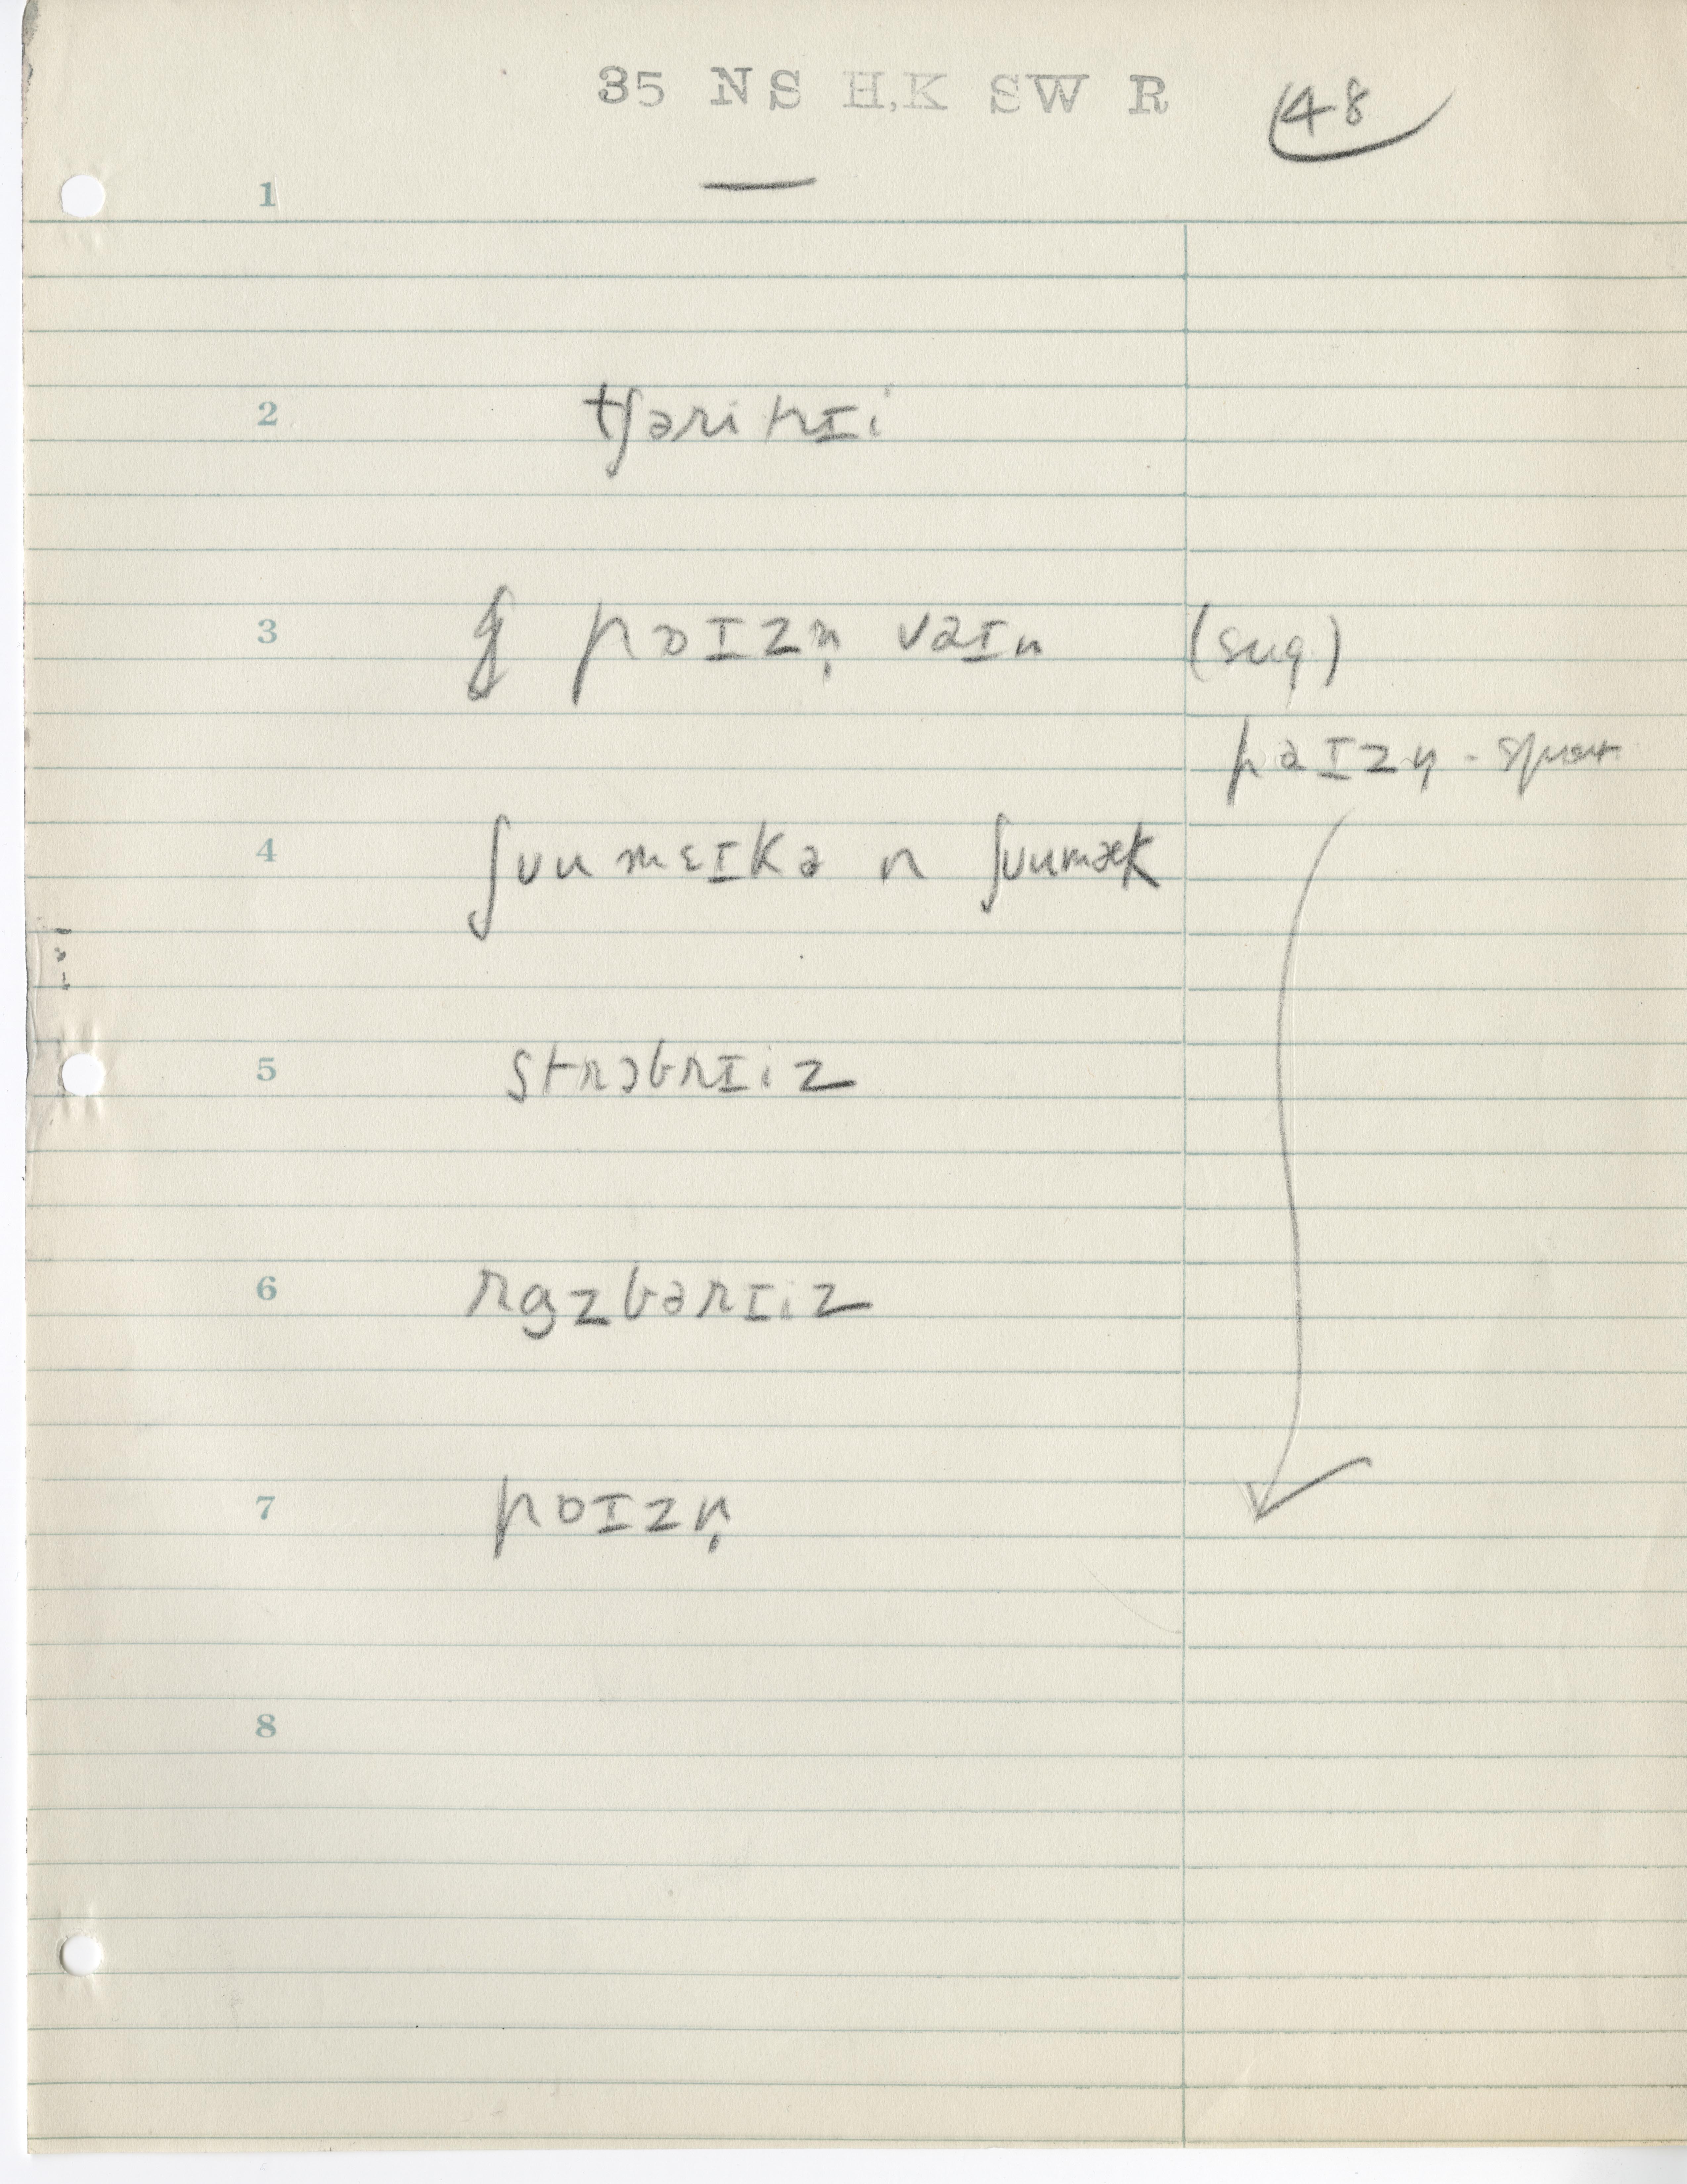 35 NS H,K SW R 48
1 —
2 tʃəri trɪi
3 ʄ pɔɪzn̩ vaɪn (sug.)
pəɪzn̩ -
4 ʃuumɛɪkə n ʃuumæk
5 strɔbrɪiz
6 rɑzbərɪiz
7 pɔɪzn̩
8